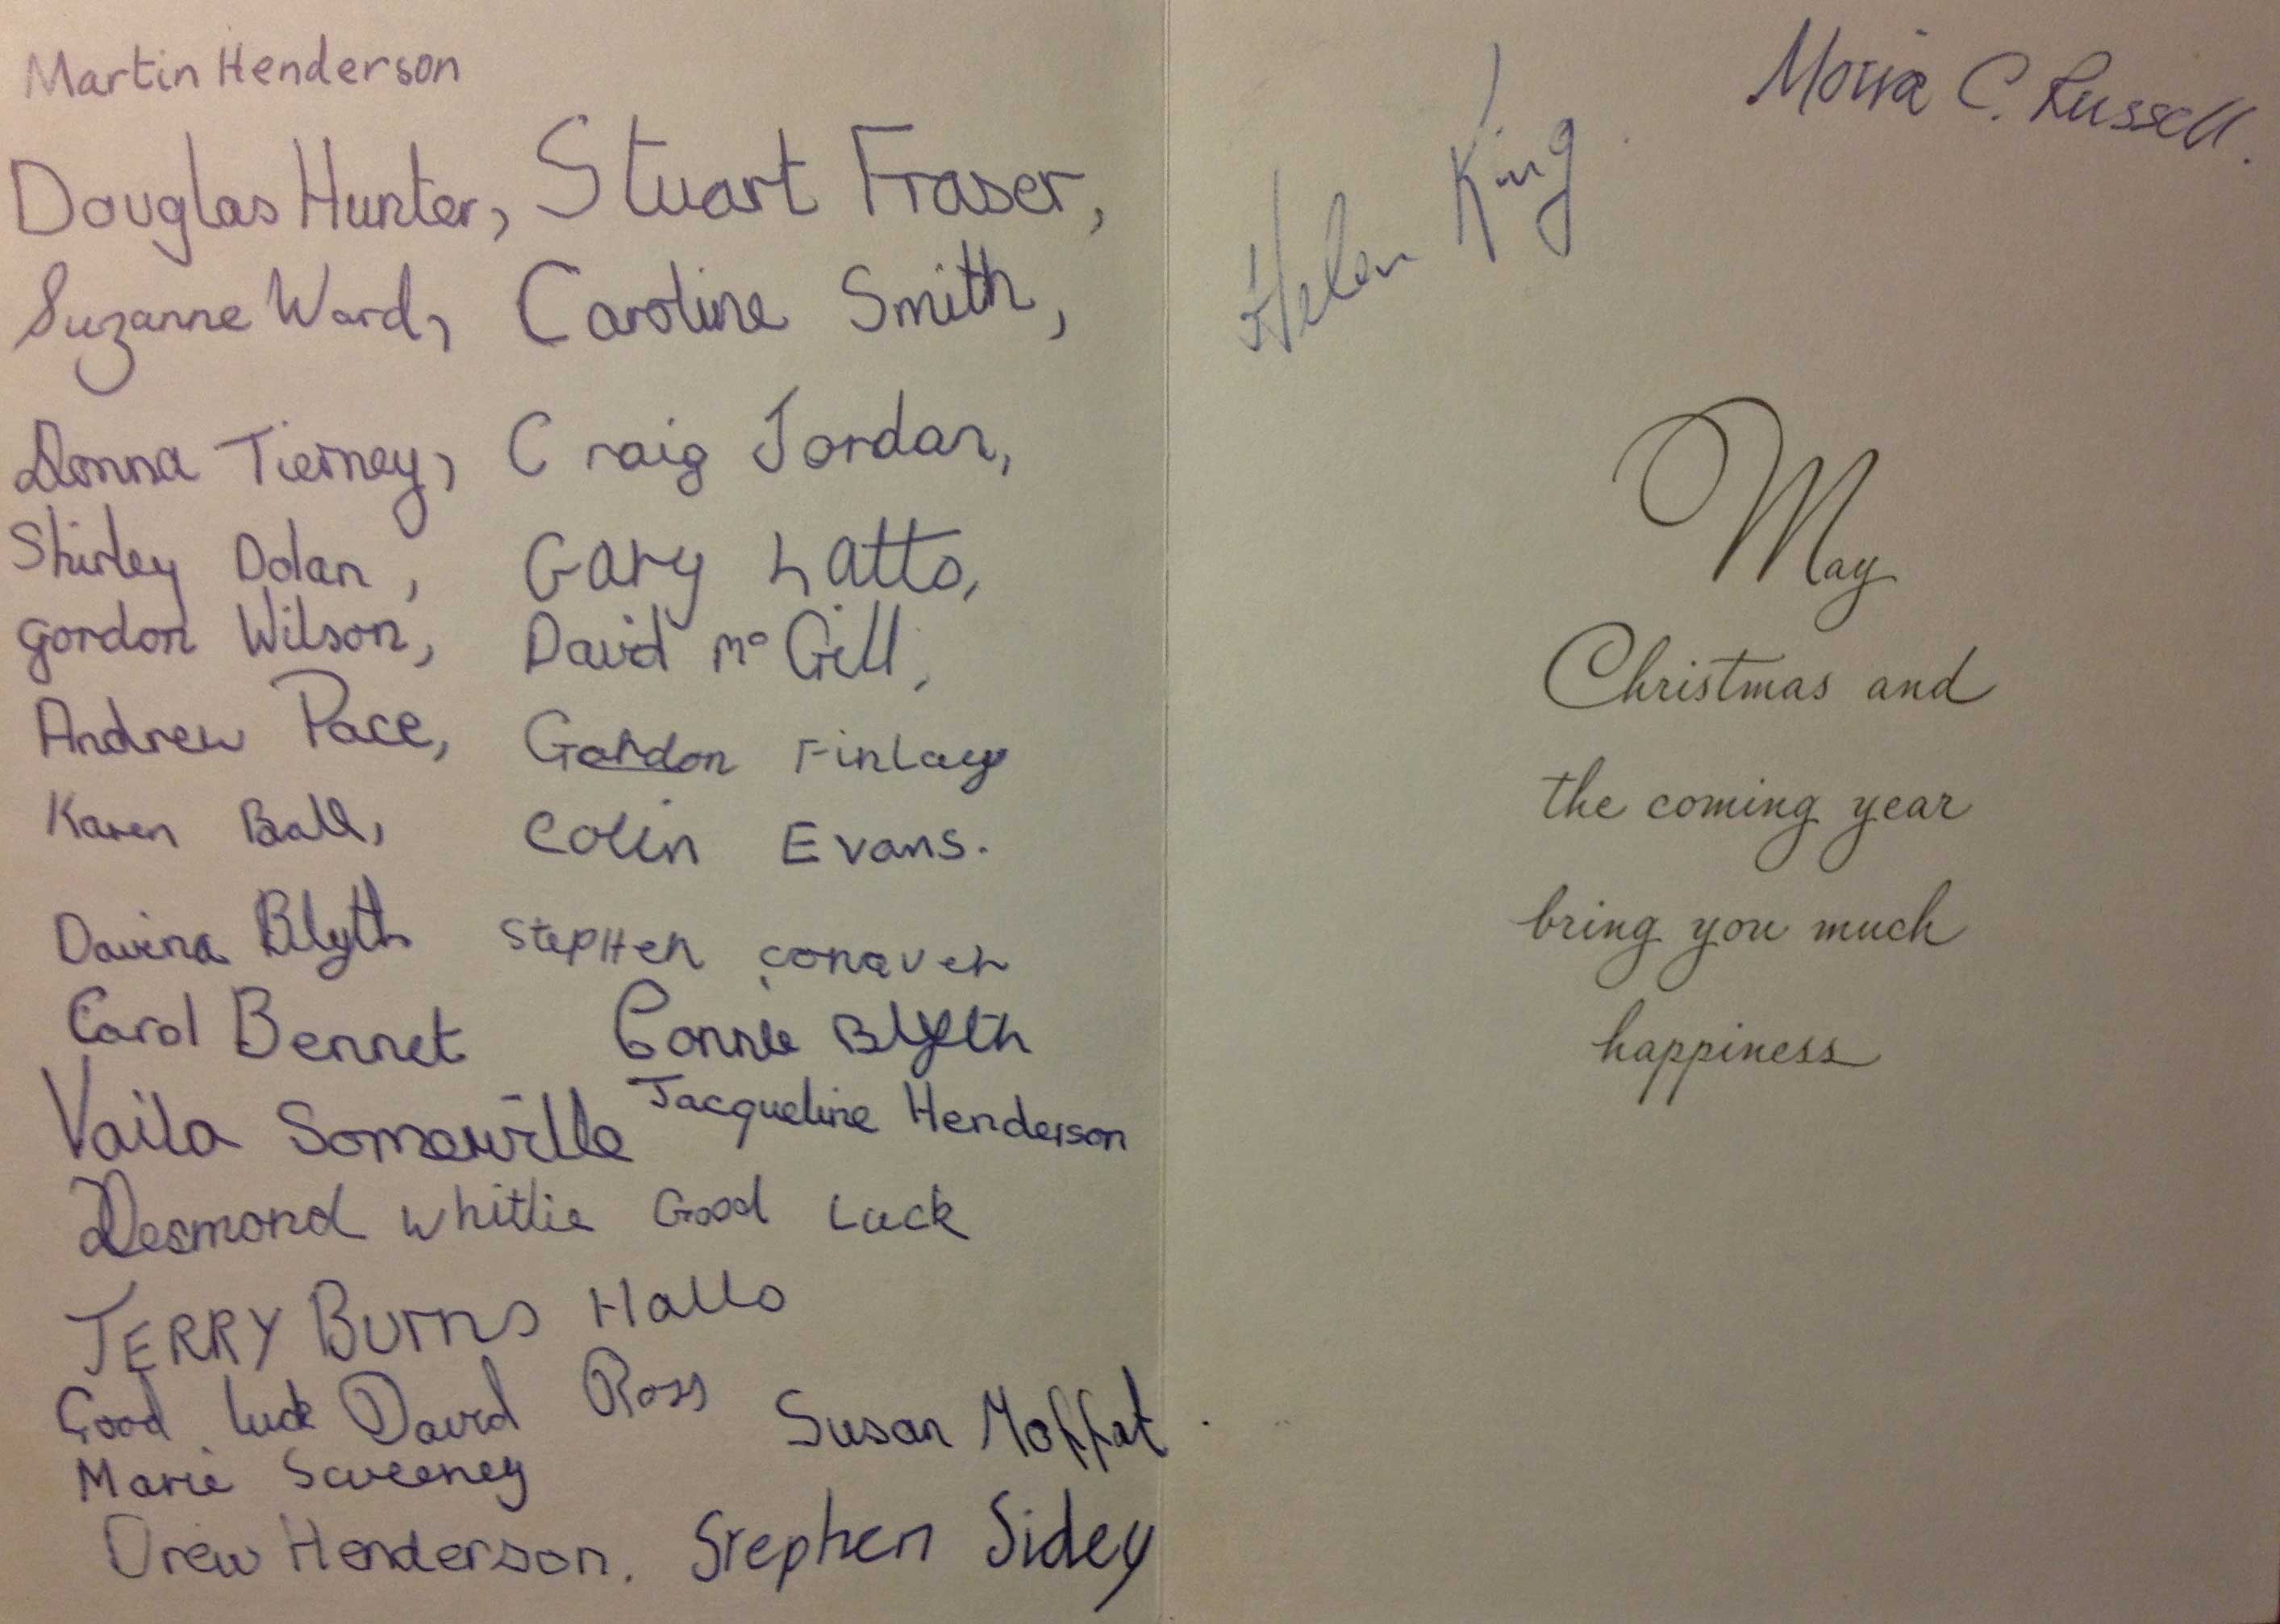 Martin Henderson
Douglas Hunter, Stuart Fraser,
Suzanne Ward, Caroline Smith,
Donna Tierney, Craig Jordan,
Shirley Dolan, Gary Latto,
Gordon Wilson, David Mc Gill,
Andrew Pace, Gordon Finlay
Karen Ball, Colin Evans.
Davina Blyth Stephen Conaver
Carol Bennet Connie Blyth
Vaila Somerville Jacqueline Henderson
Desmond Whitlie Good Luck
TERRY Burns Hallo
Good luck David Ross Susan Moffat
Marie Sweeney
Drew Henderson. Stephen Sidey
Moira C. Russell.
Helen King
May
Christmas and
the coming year
bring you much
happiness